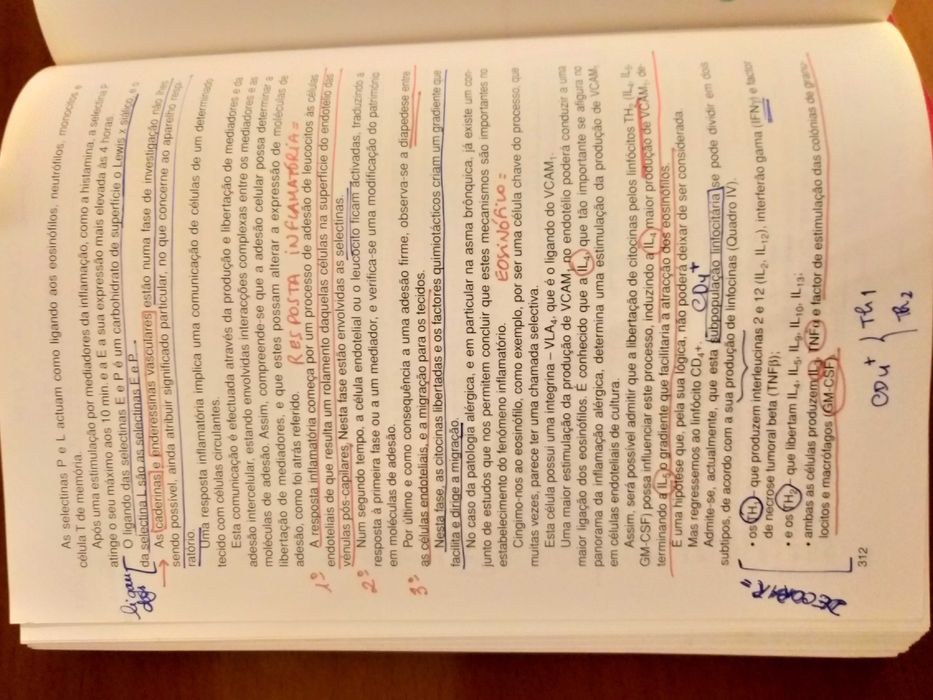 As selectinas P e L actuam como ligando aos eosinófilos, neutrófilos, monócitos e
célula T de memória.
Após uma estimulação por mediadores da inflamação, como a histamina, a selectina P
atinge o seu máximo aos 10 min. e a E a sua expressão mais elevada às 4 horas.
O ligando das selectinas E e P é um carbohidrato de superfície o Lewis x siálico, e o
da selectina L são as selectinas E e P.
As caderinas e enderessinas vasculares estão numa fase de investigação não lhes
sendo possível, ainda atribuir significado particular, no que concerne ao aparelho respi-
ratório.
Uma resposta inflamatória implica uma comunicação de células de um determinado
tecido com células circulantes.
Esta comunicação é efectuada através da produção e libertação de mediadores e da
adesão intercelular, estando envolvidas interacções complexas entre os mediadores e as
moléculas de adesão. Assim, compreende-se que a adesão celular possa determinar a
libertação de mediadores, e que estes possam alterar a expressão de moléculas de
adesão, como foi atrás referido.
RESPOSTA INFLAMATÓRIA:
A resposta inflamatória começa por um processo de adesão de leucocitos às células
endoteliais de que resulta um rolamento daquelas células na superfície do endotélio das
vénulas pós-capilares. Nesta fase estão envolvidas as selectinas.
Num segundo tempo, a célula endotelial ou o leucócito ficam activadas, traduzindo a
resposta à primeira fase ou a um mediador, e verifica-se uma modificação do património
em moléculas de adesão.
Por último e como consequência a uma adesão firme, observa-se a diapedese entre
as células endoteliais, e a migração para os tecidos.
Nesta fase, as citocinas libertadas e os factores quimiotácticos criam um gradiente que
facilita e dirige a migração.
No caso da patologia alérgica, e em particular na asma brônquica, já existe um con-
junto de estudos que nos permitem concluir que estes mecanismos são importantes no
estabelecimento do fenómeno inflamatório.
EOSINÓFILO:
Cingimo-nos ao eosinófilo, como exemplo, por ser uma célula chave do processo, que
muitas vezes, parece ter uma chamada selectiva.
Esta célula possui uma integrina - VLA4, que é o ligando do VCAM1.
Uma maior estimulação da produção de VCAM1 no endotélio poderá conduzir a uma
maior ligação dos eosinófilos. É conhecido que a IL4, que tão importante se afigura no
panorama da inflamação alérgica, determina uma estimulação da produção de VCAM1
em células endoteliais de cultura.
Assim, será possível admitir que a libertação de citocinas pelos linfócitos TH2 (IL4, IL5
GM-CSF) possa influenciar este processo, induzindo a (IL4) maior produção de VCAM1, de-
terminando a (IL5) o gradiente que facilitaria a atracção dos eosinófilos.
É uma hipótese que, pela sua lógica, não poderá deixar de ser considerada.
Mas regressemos ao linfócito CD4+.
CD4+
Admite-se, actualmente, que esta subpopulação linfocitária se pode dividir em dois
subtipos, de acordo com a sua produção de linfocinas (Quadro IV).
• os TH1 que produzem interleucinas 2 e 12 (IL2, IL12), interferão gama (IFNγ) e factor
de necrose tumoral beta (TNFβ);
• e os TH2 que libertam IL4, IL5, IL9, IL10, IL13;
• ambas as células produzem IL3, TNFα e factor de estimulação das colónias de granu-
lócitos e macrófagos (GM-CSF).
312
ligan
dos
1º
2º
3º
DECORAR!!
CD4+ { Th1
Th2